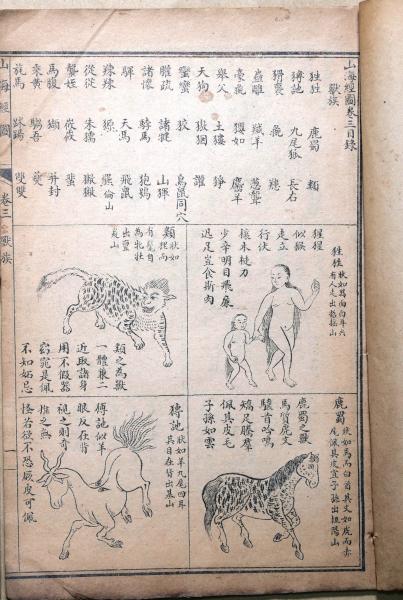 山海經圖卷三目錄
獸族
狌狌 鹿蜀 類
猼訑 九尾狐 長右
猾褢 彘
蠱雕 羬羊 蔥聾
豪彘 玃如 麢羊
舉父 土螻 猙
天狗 讙
蠻蠻 狡 鳥鼠同穴
䑏疏 諸犍 山𤟤
諸懷 駮馬 狍鴞
驒 天馬 飛鼠
辣辣 獂
從從 朱獳 獙獙
蠪蛭 峳峳 蜚
馬腹 并封
乘黃 騶吾
旄馬 跊踢 雙雙
狌狌 狀如禺而白耳伏
行人走出招搖山
猩猩
似猴
走立
行伏
櫰木挺力
少辛明目飛廉
迅足豈食斯肉
類 狀如狸而
有髦自
為牝牡
出亶
爰山
類之為獸
一體兼二
近取諸身
用不假器
窈窕是佩
不知妒忌
鹿蜀 狀如馬而白首其文如虎而赤
尾佩其皮宜子孫出杻陽山
鹿蜀之獸
馬質虎文
驤首吟鳴
矯足騰群
佩其皮毛
子孫如雲
猼訑 狀如羊九尾四耳
其目在背出基山
猼訑似羊
眼反在背
視之則奇
推之無
怪若欲不恐厥皮可佩
山海經圖 卷三 獸族